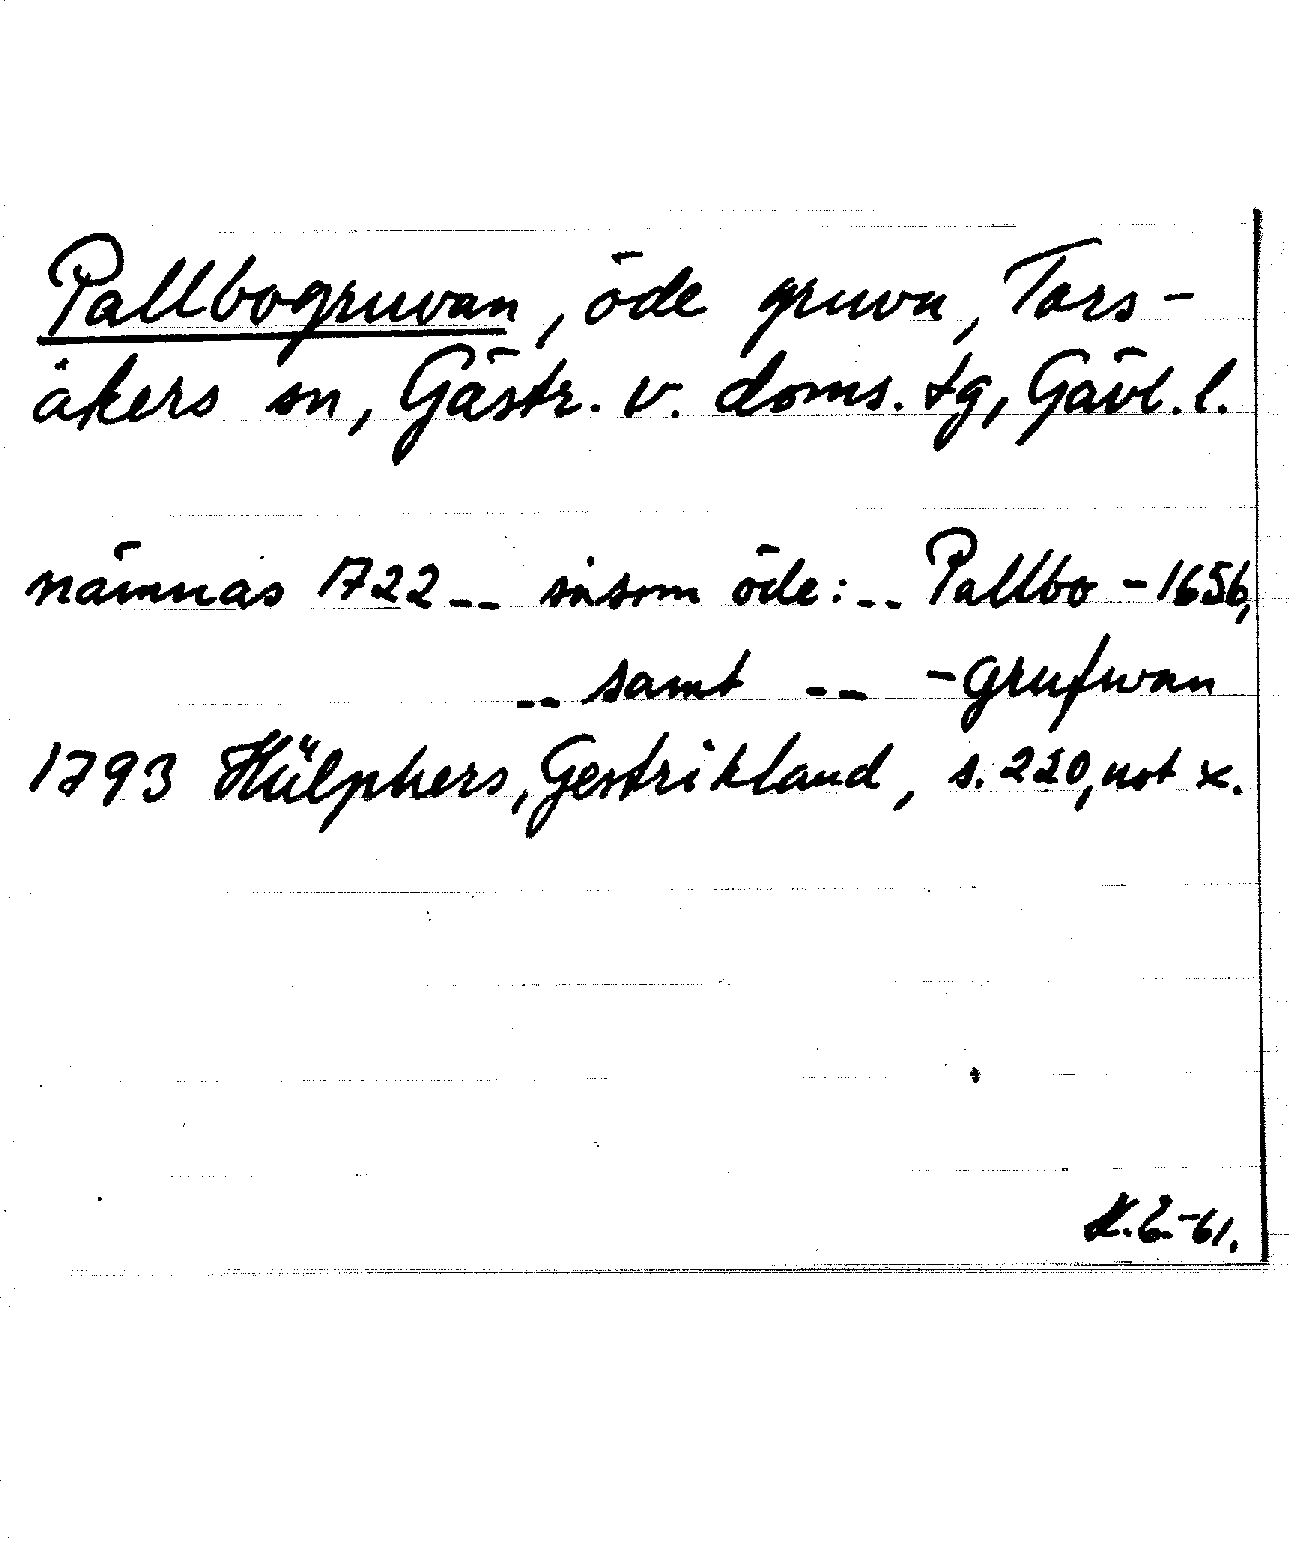 Pallbogruvan, öde gruva, Tors-
åkers sn, Gästr. v. doms. tg, Gävl. l.
nämnas 1722 -- såsom öde: -- Pallbo - 1656,
-- samt -- -grufwan
1793 Hülphers, Gestrikland, s. 220, not x.
K.E.-61.